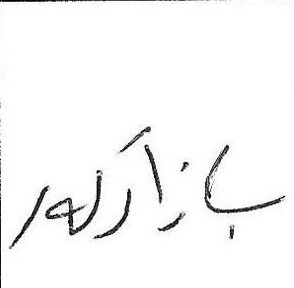 بازارلهر